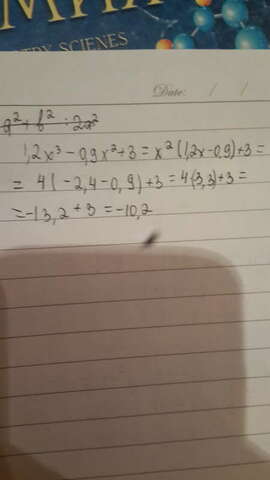 SCIENES
Date: / /
a² + b² : 2a²
1,2x³ - 0,9x² + 3 = x² (1,2x - 0,9) + 3 =
= 4 ( - 2,4 - 0,9) + 3 = 4 (3,3) + 3 =
= - 13,2 + 3 = - 10,2